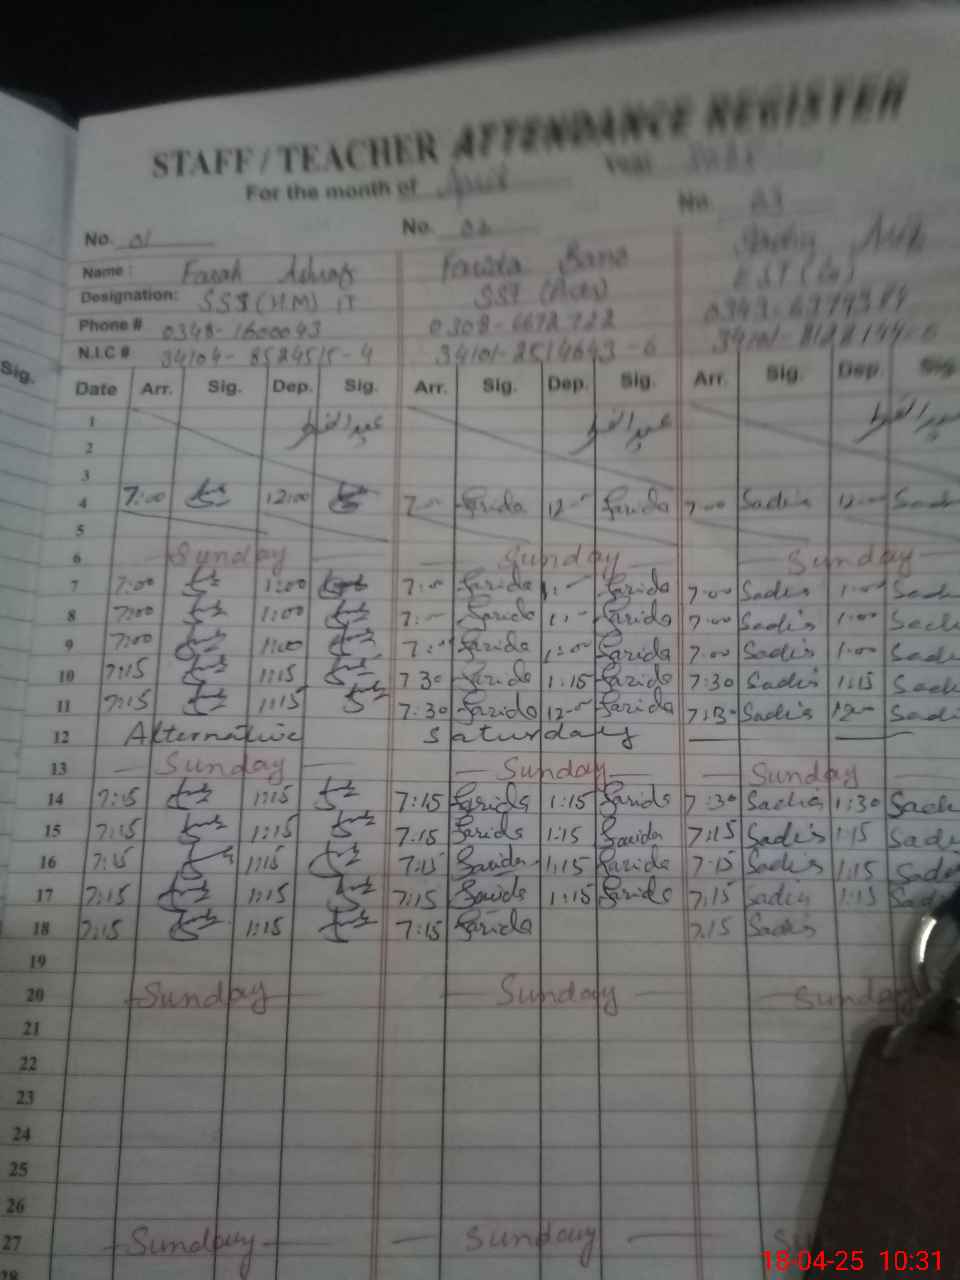 STAFF / TEACHER ATTENDANCE REGISTER
For the month of April Year
No. 01 No. 02 No. 03
Name : Farah Farida Bano
Designation: SST (H.M) IT SST (Arts) EST
Phone # 0348-1600043 0308-6672722 0343-6379384
N.I.C # 34104-8524515-4 34101-2514643-6 34101-8122144-6
Sig. Date Arr. Sig. Dep. Sig. Arr. Sig. Dep. Sig. Arr. Sig. Dep. Sig
1 عید الفطر عید الفطر عید الفطر
2
3
4 7:00 12:00 7-- Farida 12-- Farida 7:00 Sadia 12-- Sad
5
6 Sunday Sunday Sunday
7 7:00 1:00 7:-- Farida 1:-- Farida 7:00 Sadia 1:00 Sadi
8 7:00 1:00 7:-- Farida 1:-- Farida 7:00 Sadia 1:00 Sadi
9 7:00 1:00 7:00 Farida 1:00 Farida 7:00 Sadia 1:00 Sadi
10 7:15 1:15 7 30 Farida 1:15 Farida 7:30 Sadia 1:15 Sadi
11 7:15 1:15 7:30 Farida 12-- Farida 7:30 Sadia 12-- Sadi
12 Alternative Saturday
13 Sunday Sunday Sunday
14 7:15 1:15 7:15 Farida 1:15 Farida 7:30 Sadia 1:30 Sadi
15 7:15 1:15 7:15 Farida 1:15 Farida 7:15 Sadia 1:15 Sadi
16 7:15 1:15 7:15 Farida 1:15 Farida 7:15 Sadia 1:15 Sadi
17 7:15 1:15 7:15 Farida 1:15 Farida 7:15 Sadia 1:15 Sad
18 7:15 1:15 7:15 Farida 7:15 Sadia
19
20 Sunday Sunday Sunday
21
22
23
24
25
26
27 Sunday Sunday Su
28
18-04-25 10:31